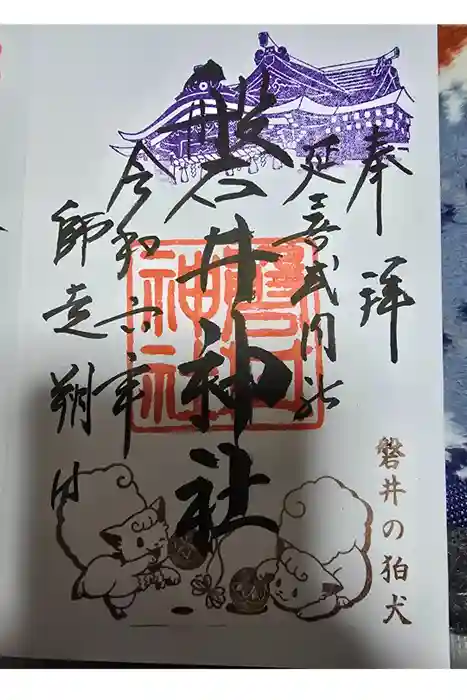 奉拝
延喜式内社
磐井神社
令和六年
師走朔日
磐井神社
磐井の狛犬